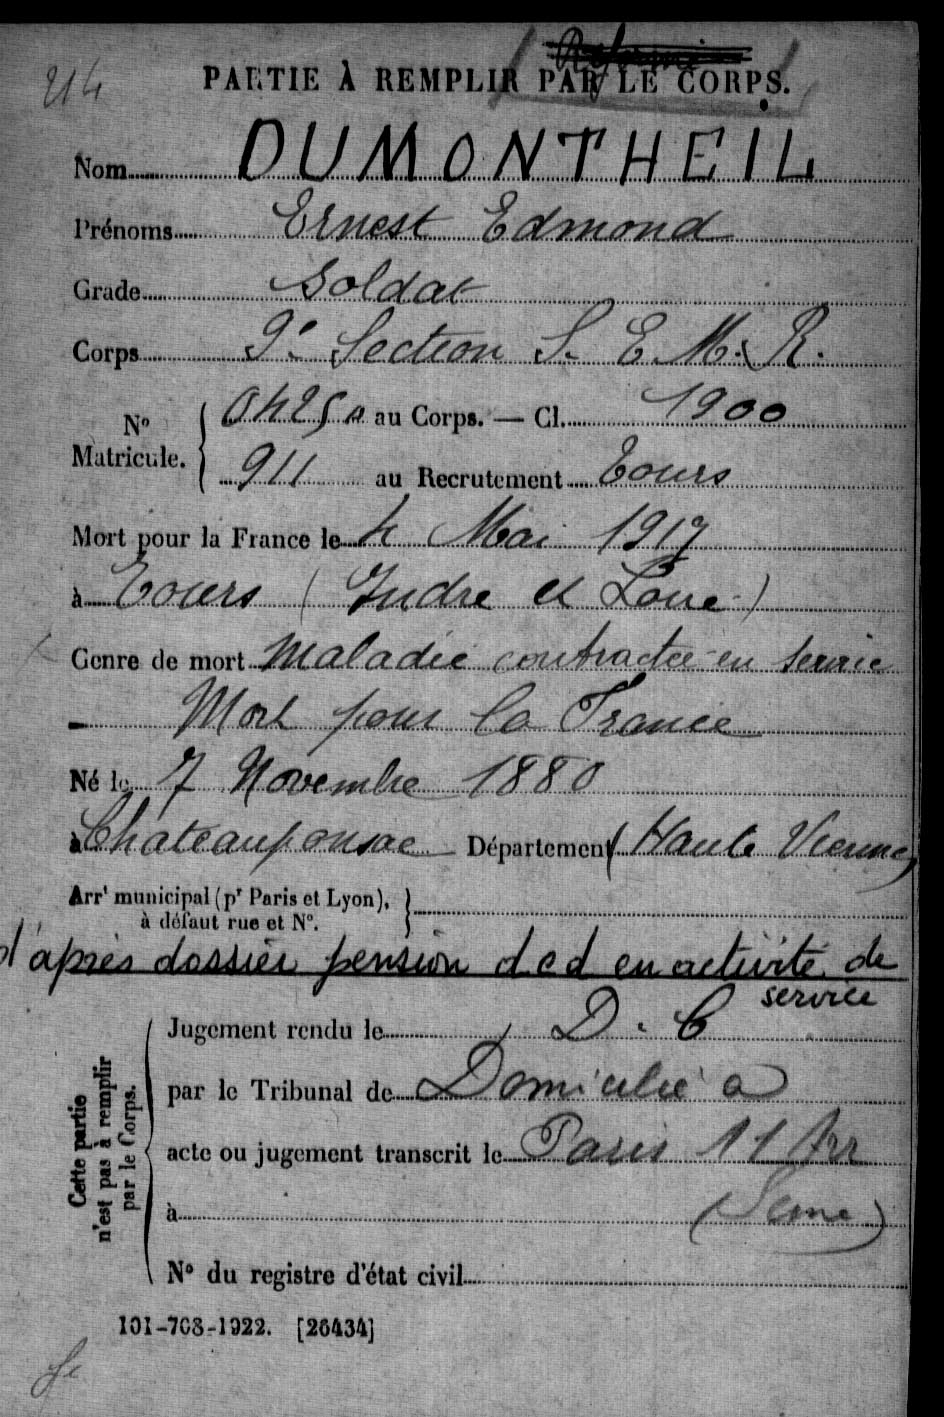 214
PARTIE À REMPLIR PAR LE CORPS.
Nom DUMONTHEIL
Prénoms Ernest Edmond
Grade Soldat
Corps 9e Section S. E. M. R.
No Matricule. { au Corps. — Cl. 1900
911 au Recrutement Tours
Mort pour la France le 4 Mai 1917
à Tours (Indre et Loire)
Genre de mort Maladie contractée en service
Mort pour la France
Né le 7 Novembre 1880
à Chateauponsac Département (Haute Vienne)
Arrt municipal (pr Paris et Lyon), }
à défaut rue et No.
d'après dossier pension dcd en activité de
service
Cette partie
n'est pas à remplir
par le Corps.
Jugement rendu le D. C
par le Tribunal de Domicilié a
acte ou jugement transcrit le Paris 11 Arr
à (Seine)
No du registre d'état civil
101-708-1922. [26434]